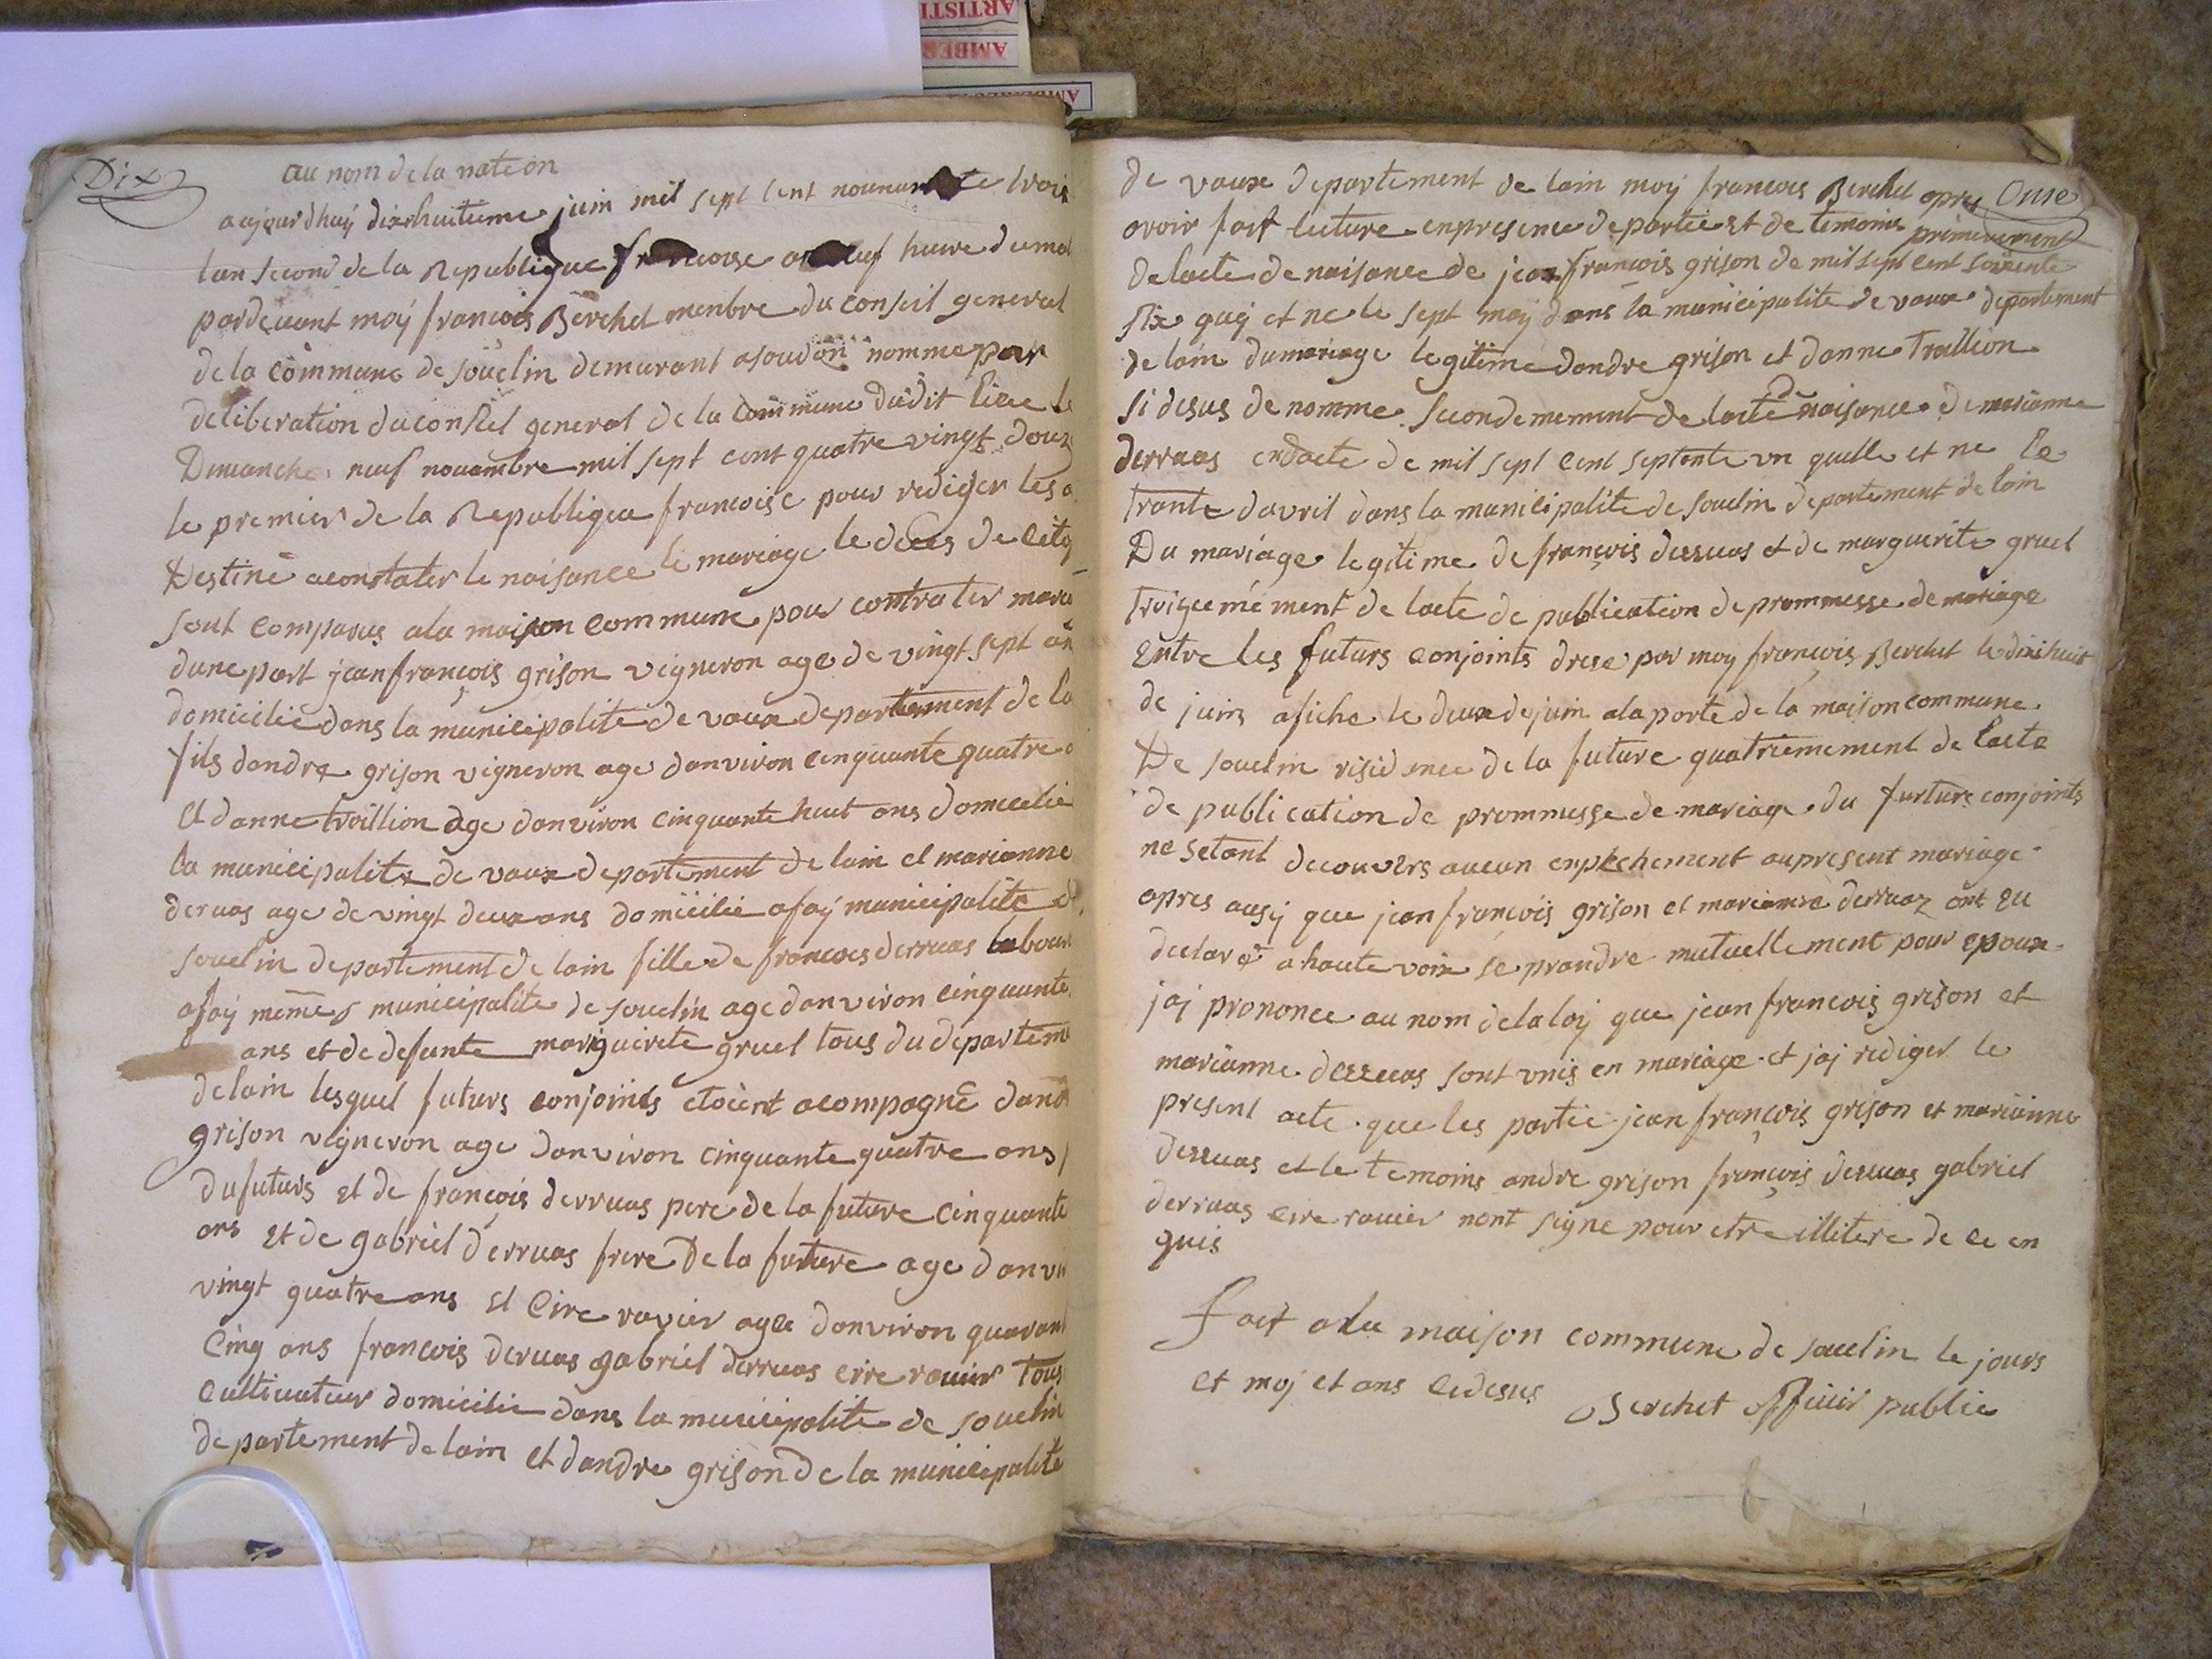 ARTISTI
AMBER
Dix
au nom de la nation
aujourdhuy dixhuitieme juin mil sept cent nounante trois
lan second de la Republique francoise a neuf heure du mat
pardevant moy francois Berchet menbre du conseil general
de la commune de souclin demurant asoudon nomme par
deliberation du consiel general de la commune dudit lieu le
Dimanche neuf nouambre mil sept cent quatre vingt douze
le premier de la Republique francoise pour rediger les a
Destine aconstater le naisance le mariage le deces de citoy
sont comparus ala maison commune pour contrater maria
dune part jean françois grison vigneron age de vingt sept an
domicilie dans la municipalite de vaux departement de la
fils dandre grison vigneron age danviron cinquante quatre a
et danne trollion age danviron cinquante huit ans domicilie
la municipalite de vaux departement de lain et marianne
deruas age de vingt deux ans domicilie afay municipalite de
souclin departement de lain fille de francois derruas laboure
afay memes municipalite de souclin age danviron cinquante
ans et de defunte marguerite gruel tous du departeme
delain lesquel futurs conjoints etoient acompagne dand
grison vigneron age danviron cinquante quatre ans
du futurs et de françois derruas pere de la future cinquante
ans et de gabriel derruas frere de la future age danvir
vingt quatre ans et Cire ravier agee danviron quarant
Cinq ans francois deruas gabriel derruas cire ravier tous
cultivateur domicilie dans la municipalite de souclin
departement de lain et dandre grison de la municipalite
de vaux departement de lain moy francois Berchet apres Onse
avoir fait lecture enpresence de partie et de temoins primierement
de lacte de naisance de jean françois grison de mil sept cent soixente
six quij et ne le sept may dans la municipalite de vaux departement
de lain du mariage legitime dandre grison et danne Trallion
si desus denomme secondemement de lacte De naisance de marianne
derruas endacte de mil sept cent septente un quelle et ne le
trante davril dans la municipalite de souclin departement de lain
Du mariage legitime de françois derruas et de marguerite gruel
troigiemement de lacte de publication de prommesse de mariage
Entre les futurs conjoints drese par moy françois Berchet le dixhuit
de juin afiche le deux de juin ala porte de la maison commune
De souclin risidence de la future quatriemement de lacte
de publication de prommesse de mariage du furture conjoints
ne setant decouvers aucun enpechement aupresent mariage
apres ausy que jean françois grison et marianne derruaz ont eu
declare a haute voix se prandre mutuellement pour epoux
jaj prononce au nom delaloy que jean francois grison et
marianne derruas sont unis en mariage et jaj rediger le
present acte que les partie jean françois grison et marianne
derruas et le temoins andre grison françois deruas gabriel
derruas cire ravier nont signe pour etre illitere de ce en
quis
fait ala maison commune de souclin le jours
et moj et ans cidesus Berchet officier public